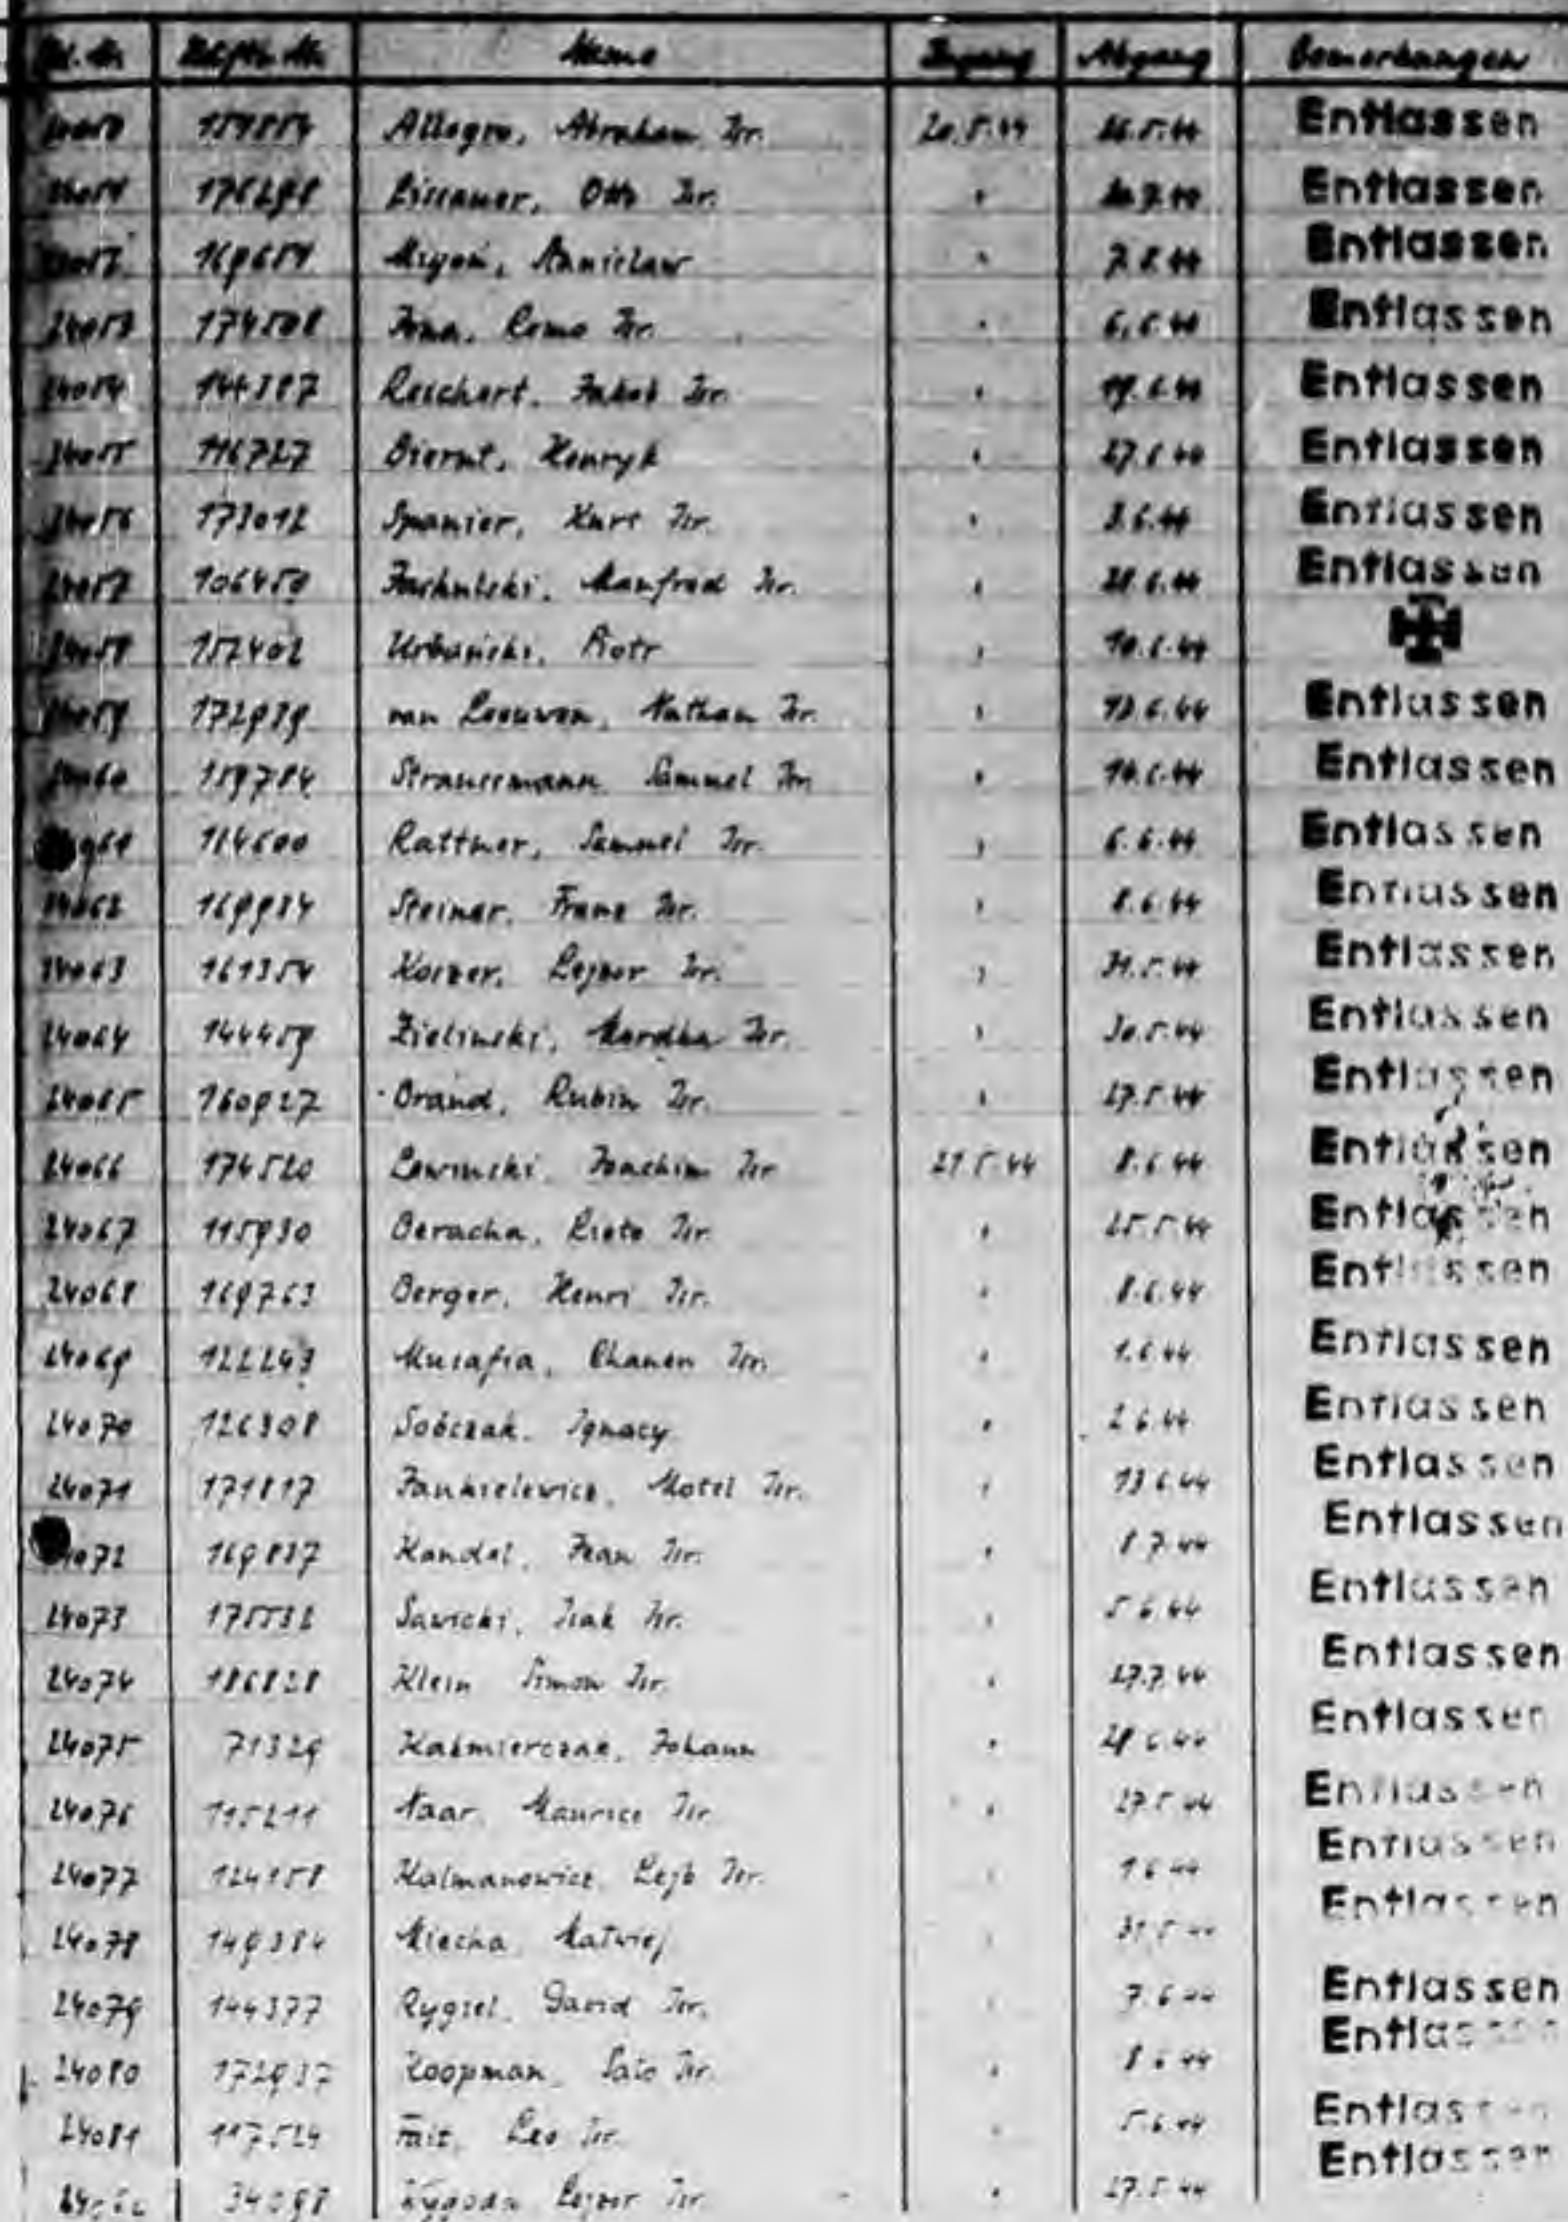 Name Zugang Abgang Bemerkungen
Allegro, Abraham Isr. 20.5.44 26.5.44 Entlassen
176298 Lissauer, Otto Isr. " Entlassen
169654 " 7.8.44 Entlassen
174508 Jona, Remo Isr. " 6.6.44 Entlassen
24054 144387 Reichert, Jakob Isr. " 19.6.44 Entlassen
24055 116727 Biernat, Henryk " 27.6.44 Entlassen
24056 173012 Spanier, Kurt Isr. " 8.6.44 Entlassen
24057 106450 Manfred Isr. " 28.6.44 Entlassen
24058 152402 Urbanicki, Piotr " 10.6.44
24059 172989 van Leeuwen, Nathan Isr. " 13.6.44 Entlassen
24060 159784 Straussmann Samuel Isr. " 10.6.44 Entlassen
Rattner, Samuel Isr. " 6.6.44 Entlassen
24062 169984 Steiner, Franz Isr. " 8.6.44 Entlassen
24063 161354 Korzer, Lejzor Isr. " 31.5.44 Entlassen
24064 144459 Zielinski, Mordka Isr. " 30.5.44 Entlassen
24065 160927 Brand, Rubin Isr. " 27.5.44 Entlassen
24066 174520 Lewinski, Joachim Isr 21.5.44 8.6.44 Entlassen
24067 115930 Beracha, Isr. " 25.5.44 Entlassen
24068 169763 Berger, Henri Isr. " 8.6.44 Entlassen
24069 122243 Musafia, Chanen Isr. " 1.6.44 Entlassen
24070 126308 Sobczak, Ignacy " 2.6.44 Entlassen
24071 171817 Jankielewicz, Motel Isr. " 13.6.44 Entlassen
24072 169837 Kandel, Jean Isr. " 8.7.44 Entlassen
24073 175532 Sawicki, Isak Isr. " 5.6.44 Entlassen
24074 186828 Klein Simon Isr. " 27.7.44 Entlassen
24075 71329 Kazmierczak, Johann " 28.6.44 Entlassen
24076 115211 Naar, Maurice Isr " 27.5.44 Entlassen
24077 124158 Kalmanowicz, Lejb Isr. " 1.6.44 Entlassen
24078 149384 Miecha Matwiej " 31.5.44 Entlassen
24079 144377 Rygiel, David Isr. " 7.6.44 Entlassen
24080 172937 Koopman, Isr. " 8.6.44 Entlassen
24081 117524 Leo Isr. " 5.6.44 Entlassen
34098 Lejzor Isr. " 27.5.44 Entlassen